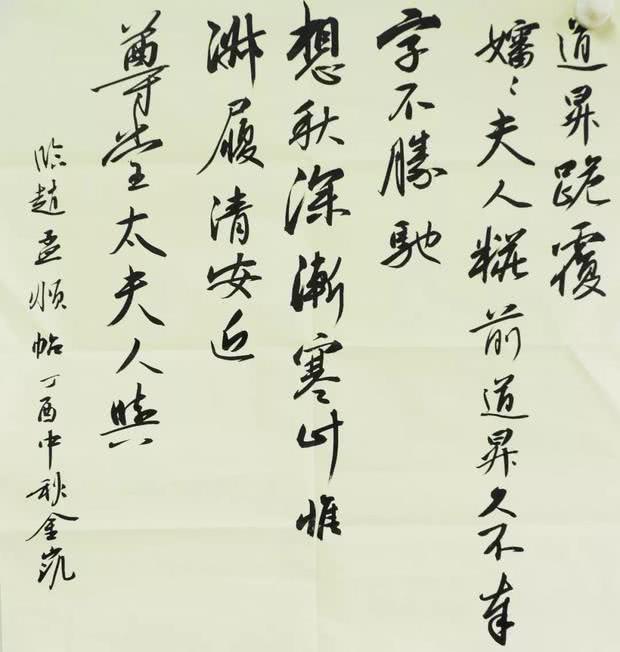 道昇跪覆
嬸〻夫人糚前道昇久不奉
字不勝馳
想秋深漸寒計惟
淑履清安近
尊堂太夫人與
临趙孟頫帖丁酉中秋金凯